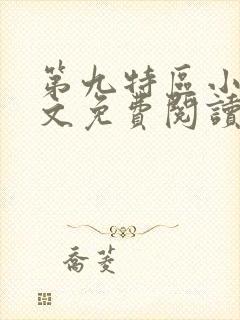 第九特區小
文免費閱讀
喬菱